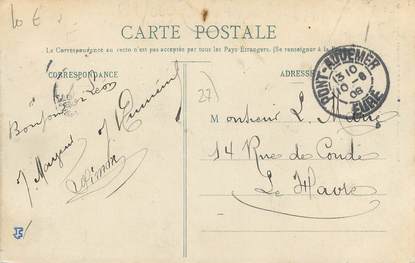 10 E
CARTE POSTALE
La Correspondance au recto n'est pas acceptée par tous les Pays Étrangers. (Se renseigner à la Poste).
CORRESPONDANCE
ADRESSE
PONT-AUDEMER
13 10
10-8
08
EURE
27
Bonjour Léon
M onsieur L.
14 Rue de Condé
Le Havre